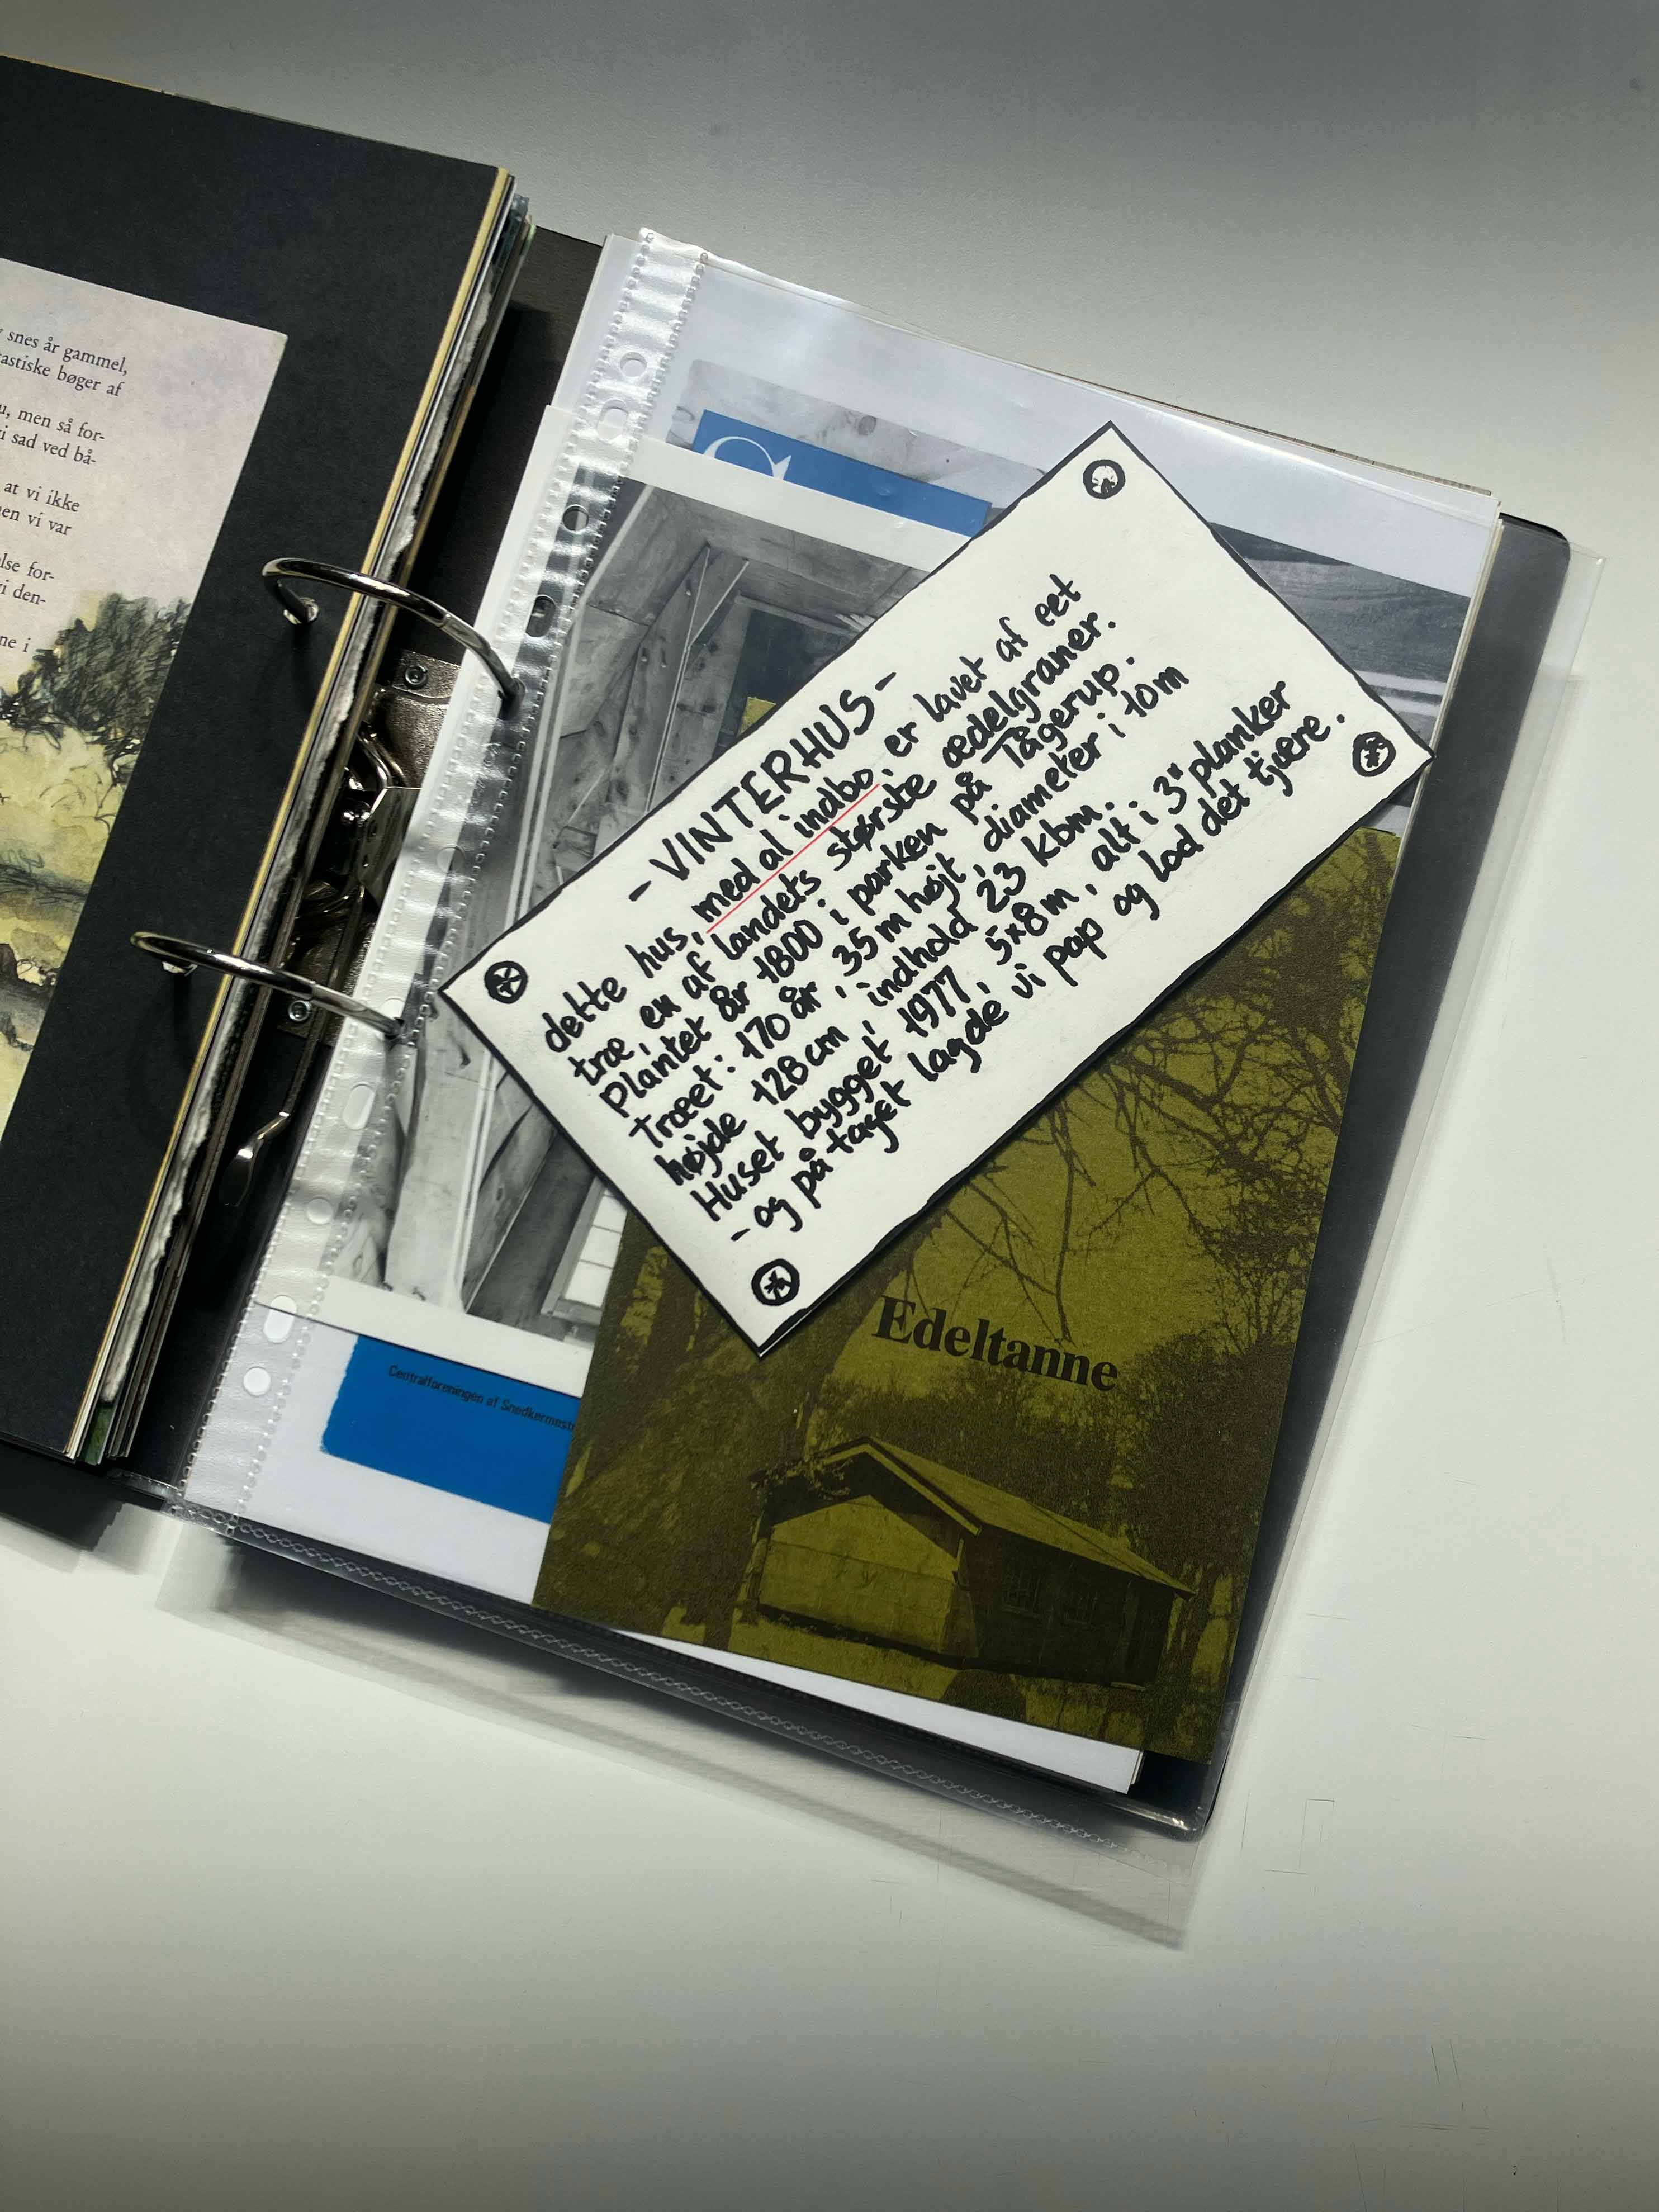 snes år gammel,
astiske bøger af
men så for-
i sad ved bå-
at vi ikke
en vi var
lse for-
vi den-
ne i
- VINTERHUS -
dette hus, med al indbo, er lavet af eet
træ, en af landets største ædelgraner.
Plantet år 1800 i parken på Tågerup.
Træet: 170 år, 35 m højt, diameter i 10m
højde 128cm, indhold 23 kbm.
Huset bygget 1977, 5x8m, alt i 3" planker
- og på taget lagde vi pap og lod det tjære.
Edeltanne
Centralforeningen af Snedkermest